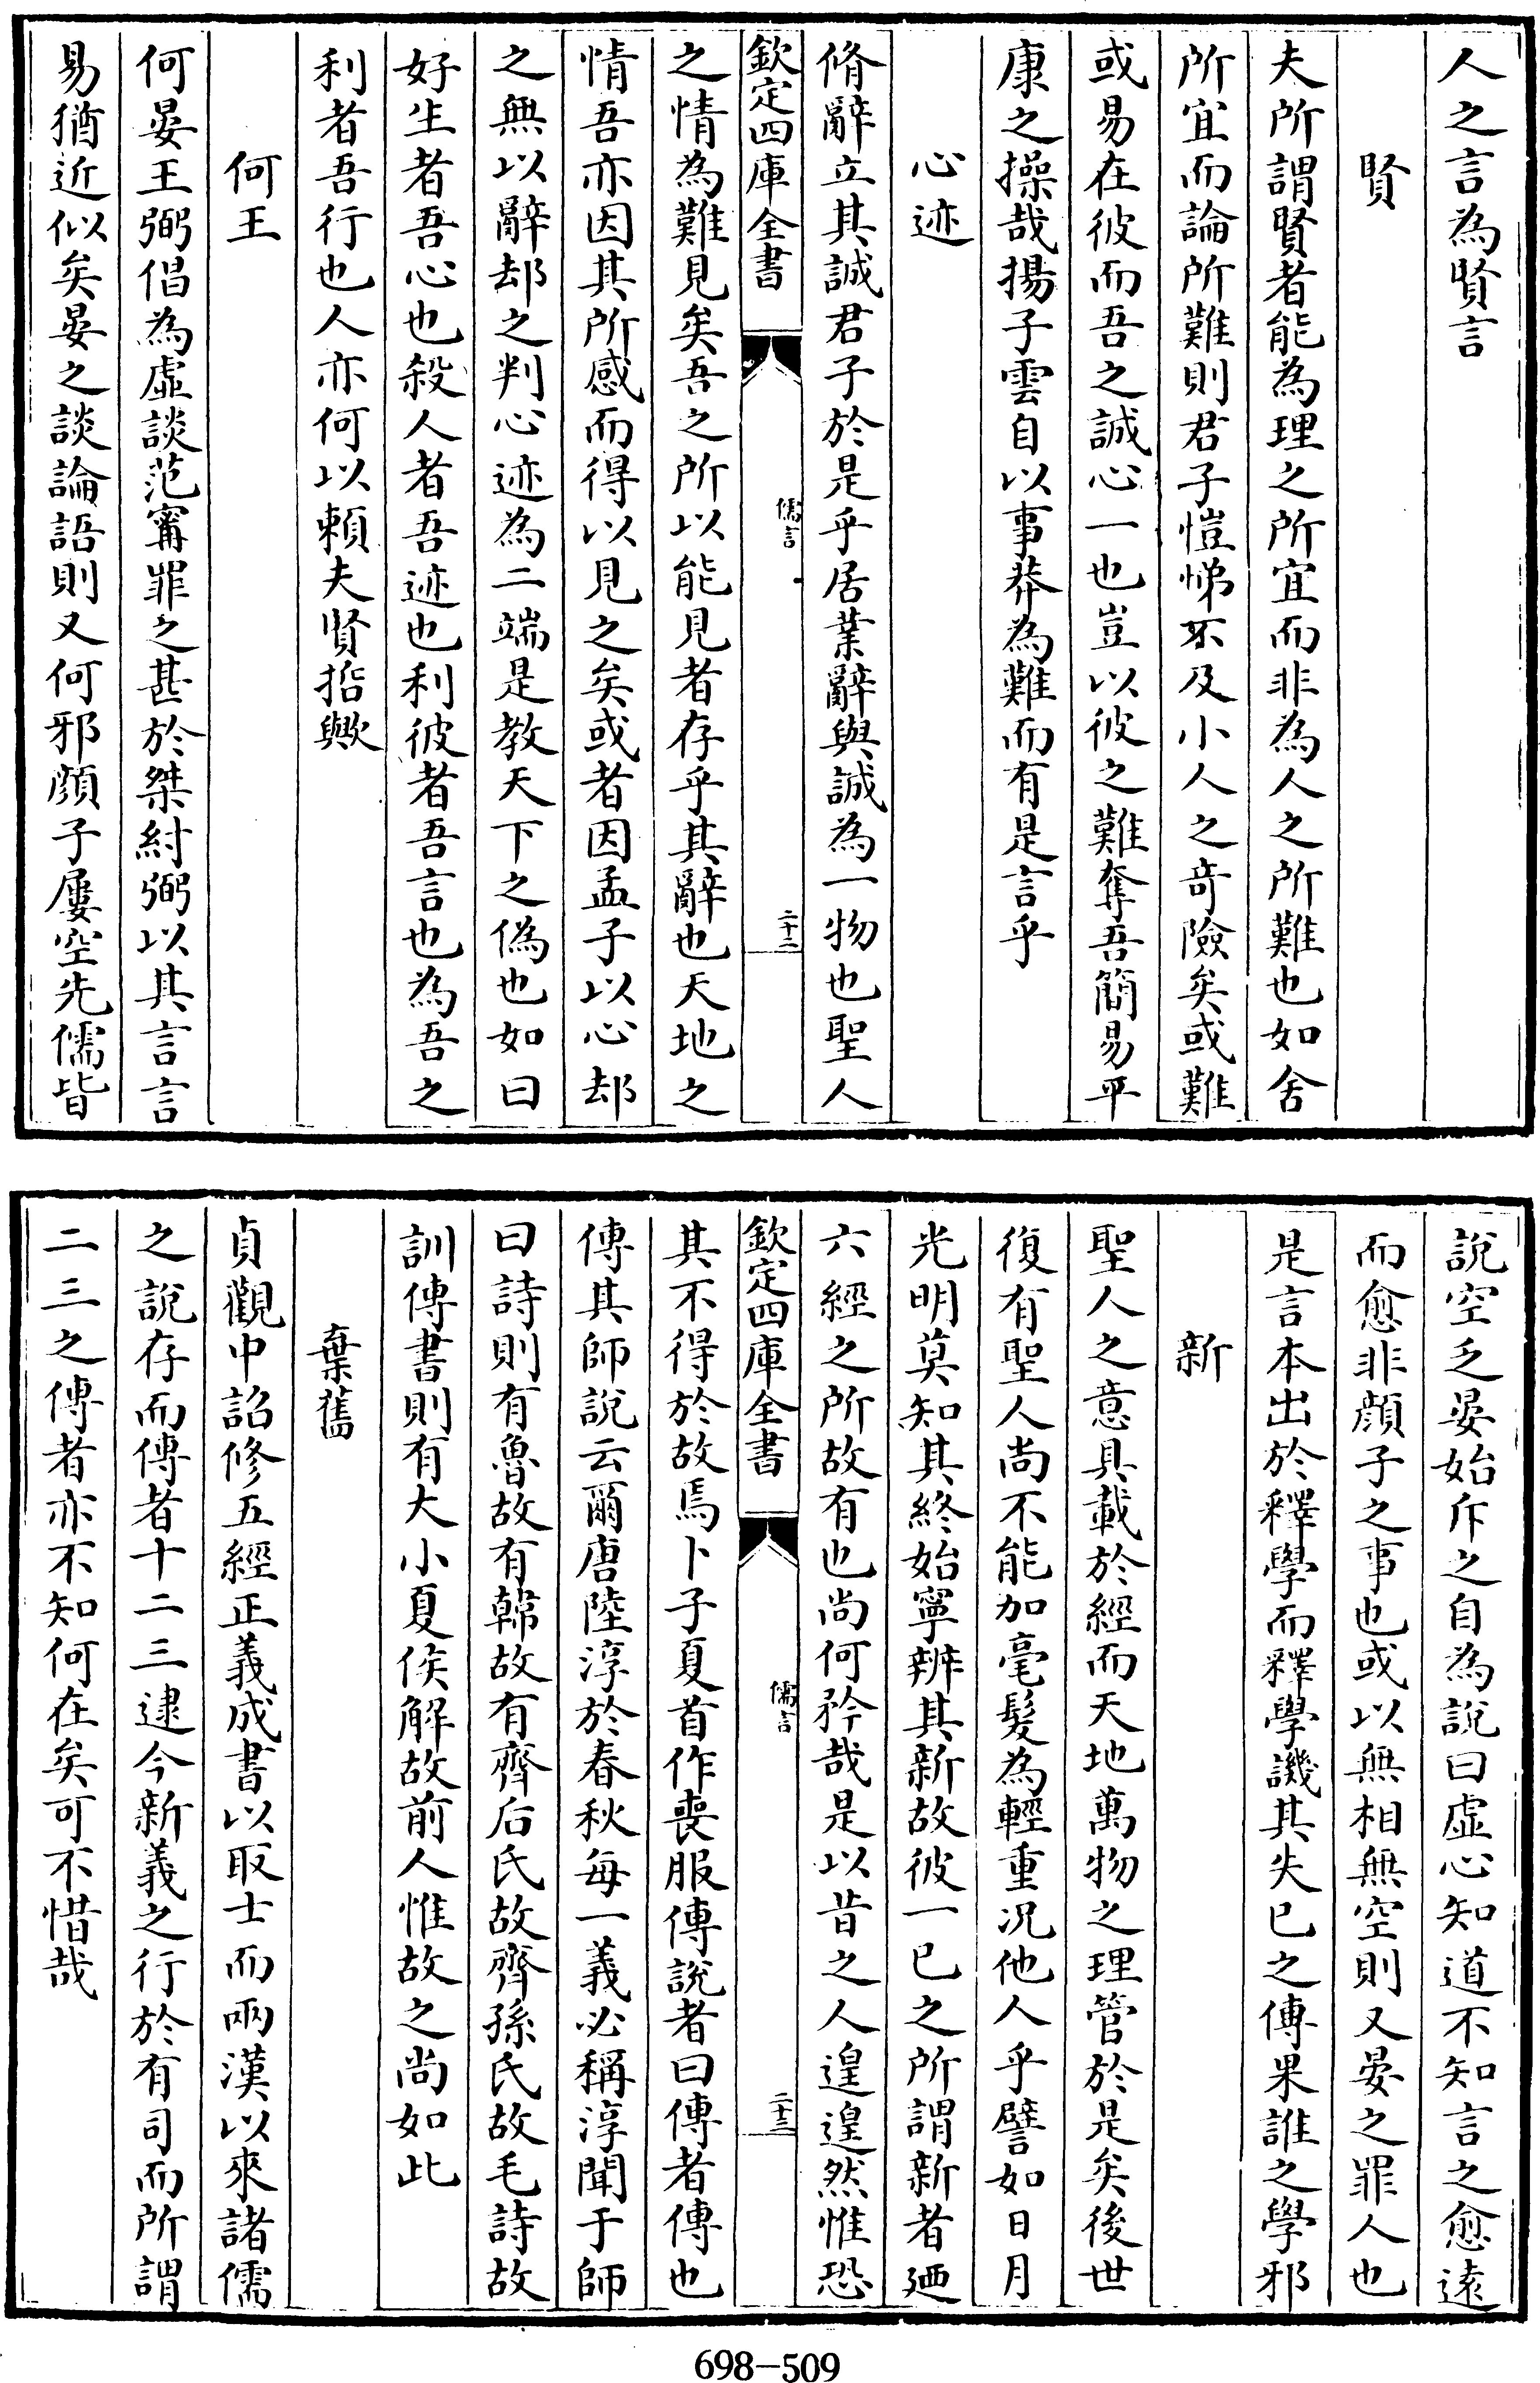 人之言為賢言
賢
夫所謂賢者能為理之所宜而非為人之所難也如舍
所宜而論所難則君子愷悌不及小人之奇險矣或難
或易在彼而吾之誠心一也豈以彼之難奪吾簡易平
康之操哉揚子雲自以事莽為難而有是言乎
心迹
脩辭立其誠君子於是乎居業辭與誠為一物也聖人
欽定四庫全書
儒言
二十二
之情為難見矣吾之所以能見者存乎其辭也天地之
情吾亦因其所感而得以見之矣或者因孟子以心却
之無以辭却之判心迹為二端是教天下之偽也如曰
好生者吾心也殺人者吾迹也利彼者吾言也為吾之
利者吾行也人亦何以賴夫賢哲歟
何王
何晏王弼倡為虛談范甯罪之甚於桀紂弼以其言言
易猶近似矣晏之談論語則又何邪顔子屢空先儒皆
說空乏晏始斥之自為說曰虛心知道不知言之愈遠
而愈非顔子之事也或以無相無空則又晏之罪人也
是言本出於釋學而釋學譏其失已之傳果誰之學邪
新
聖人之意具載於經而天地萬物之理管於是矣後世
復有聖人尚不能加毫髮為輕重况他人乎譬如日月
光明莫知其終始寧辨其新故彼一已之所謂新者廼
六經之所故有也尚何矜哉是以昔之人遑遑然惟恐
欽定四庫全書
儒言
二十三
其不得於故焉卜子夏首作喪服傳說者曰傳者傳也
傳其師說云爾唐陸淳於春秋每一義必稱淳聞于師
曰詩則有魯故有韓故有齊后氏故齊孫氏故毛詩故
訓傳書則有大小夏侯解故前人惟故之尚如此
棄舊
貞觀中詔修五經正義成書以取士而兩漢以來諸儒
之說存而傳者十二三逮今新義之行於有司而所謂
二三之傳者亦不知何在矣可不惜哉
698-509